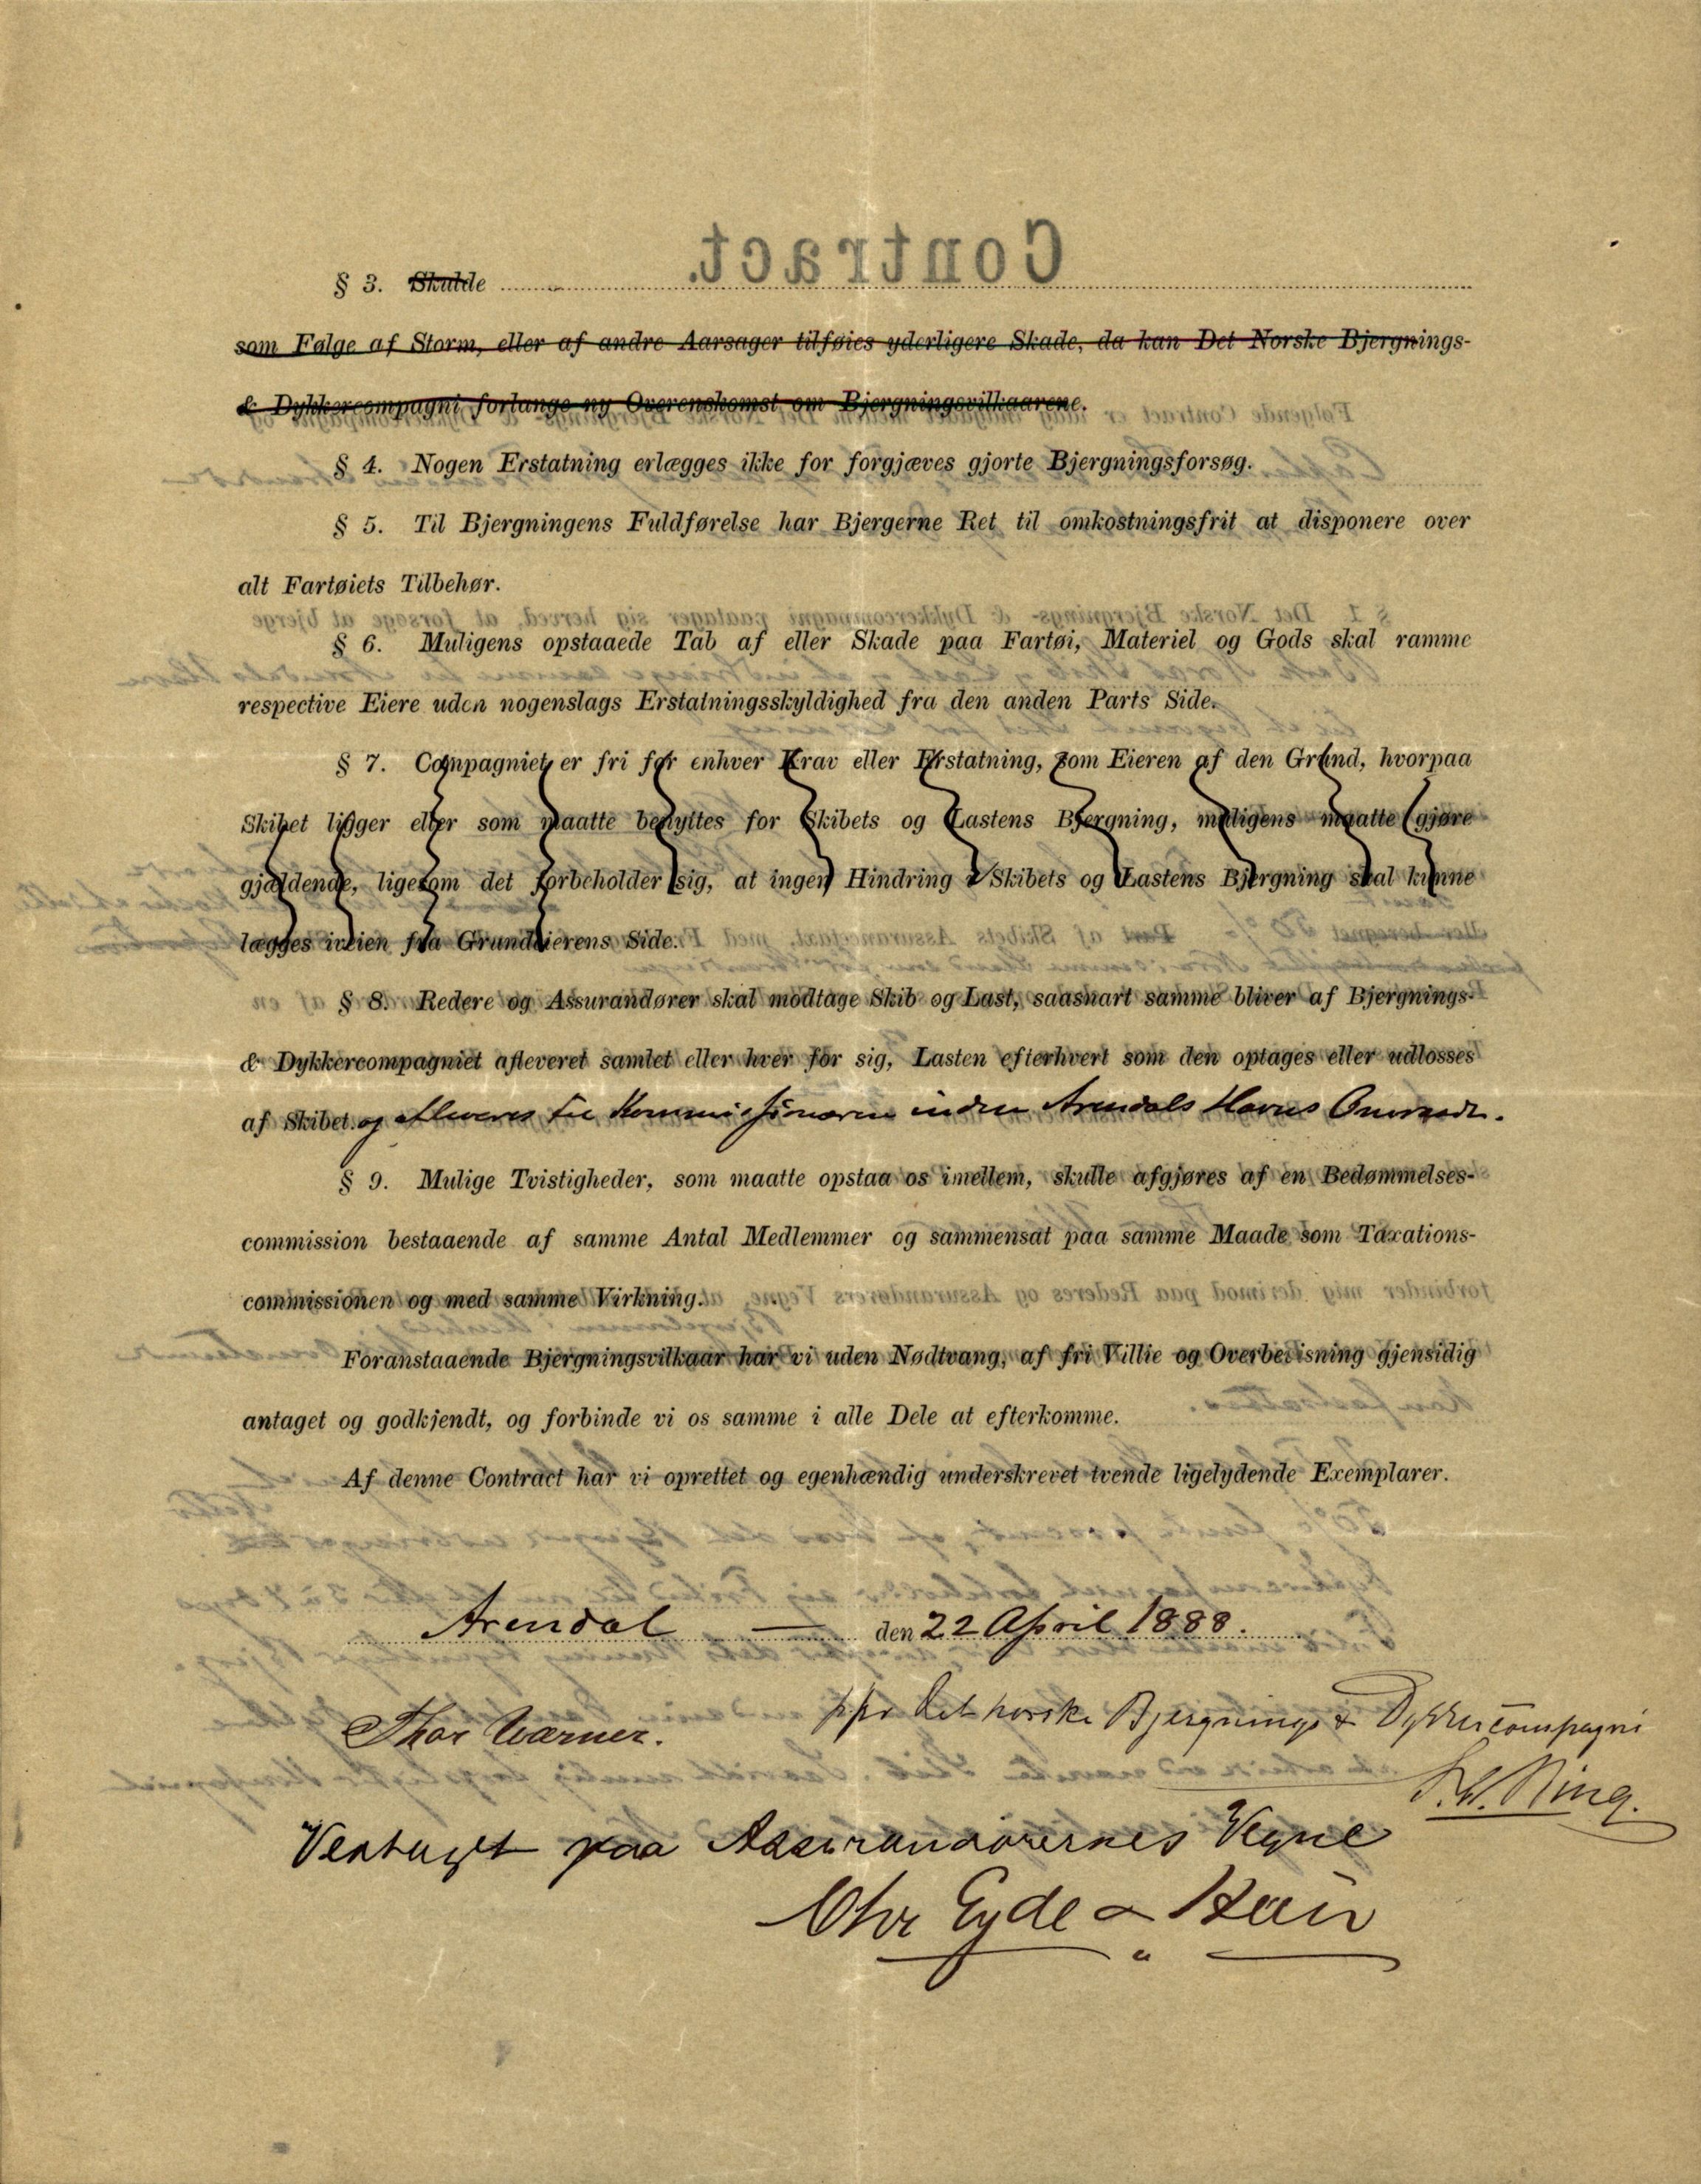 § 3. Skulde
som Følge af Storm, eller af andre Aarsager tilføies yderligere Skade, da kan Det Norske Bjergnings-
& Dykkercompagni forlange ny Overenskomst om Bjergningsvilkaarene.
§ 4. Nogen Erstatning erlægges ikke for forgjæves gjorte Bjergningsforsøg.
§ 5. Til Bjergningens Fuldførelse har Bjergerne Ret til omkostningsfrit at disponere over
alt Fartøiets Tilbehør.
§ 6. Muligens opstaaede Tab af eller Skade paa Fartøi, Materiel og Gods skal ramme
respective Eiere uden nogenslags Erstatningsskyldighed fra den anden Parts Side.
§ 7. Compagniet er fri for enhver Krav eller Erstatning, som Eieren af den Grund, hvorpaa
Skibet ligger eller som maatte benyttes for Skibets og Lastens Bjergning, muligens maatte gjøre
gjældende, ligesom det forbeholder sig, at ingen Hindring i Skibets og Lastens Bjergning skal kunne
lægges iveien fra Grundeierens Side.
§ 8. Redere og Assurandører skal modtage Skib og Last, saasnart samme bliver af Bjergnings-
& Dykkercompagniet afleveret samlet eller hver for sig, Lasten efterhvert som den optages eller udlosses
af Skibet. og afleveres til Kommissionæren inden Arendals Havns Omraade.
§ 9. Mulige Tvistigheder, som maatte opstaa os imellem, skulle afgjøres af en Bedømmelses-
commission bestaaende af samme Antal Medlemmer og sammensat paa samme Maade som Taxations-
commissionen og med samme Virkning.
Foranstaaende Bjergningsvilkaar har vi uden Nødtvang, af fri Villie og Overbevisning gjensidig
antaget og godkjendt, og forbinde vi os samme i alle Dele at efterkomme.
Af denne Contract har vi oprettet og egenhændig underskrevet tvende ligelydende Exemplarer.
Arendal — den 22 April 1888.
Thor Warner.
ppr Det norske Bjergnings & Dykkercompagni
Ring.
Vedtaget paa Assurandørernes Vegne
Chr Eyde &